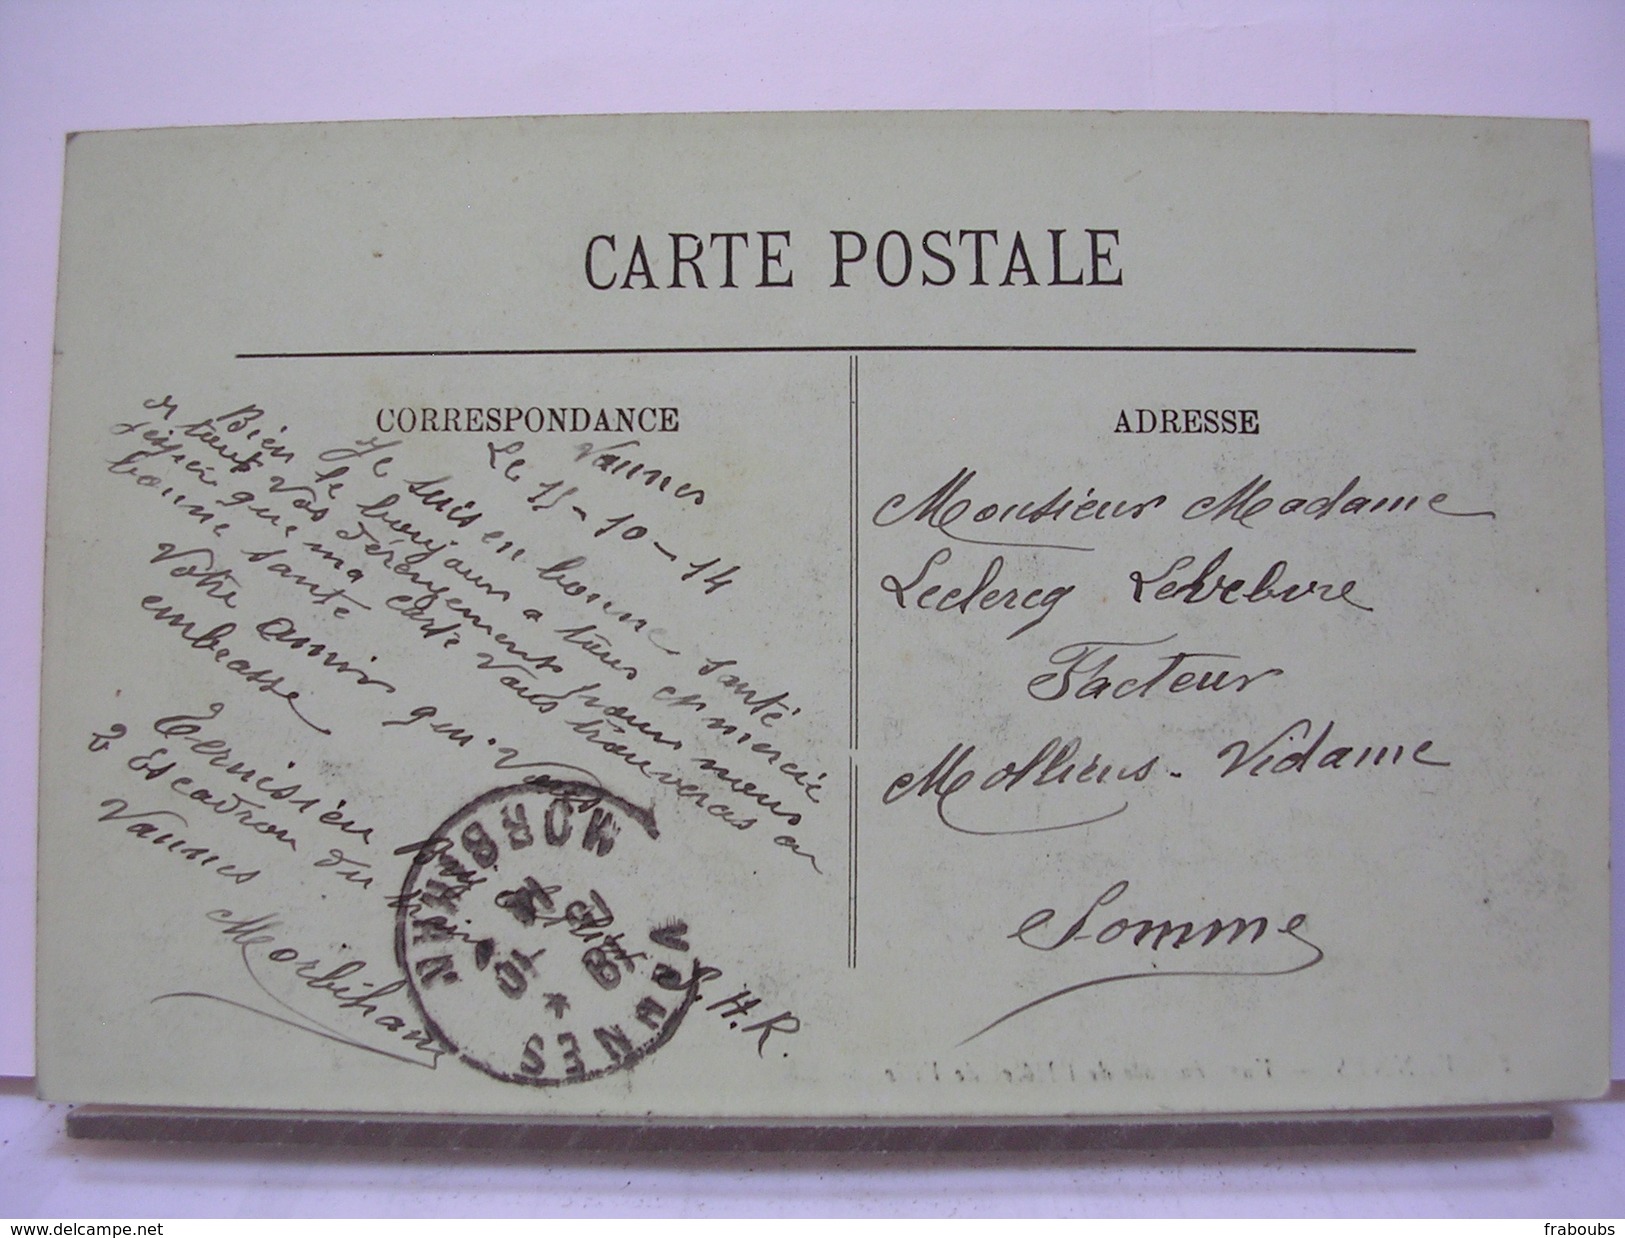 CARTE POSTALE
CORRESPONDANCE
ADRESSE
Vannes
Le 15-10-14
Je suis en bonne santé
Bien le bonjour a tous et merci
de tout vos dérengements pour nous
j'espère que ma carte vous trouveras en
bonne santé
Votre ami qui Vous
embrasse
Ternisien
2 Escadron du train
Vannes
Morbihan
S. H. R.
VANNES
MORBIHAN
Monsieur Madame
Leclercq Lefebvre
Facteur
Molliens-Vidame
Somme
http://www.delcampe.net
fraboubs